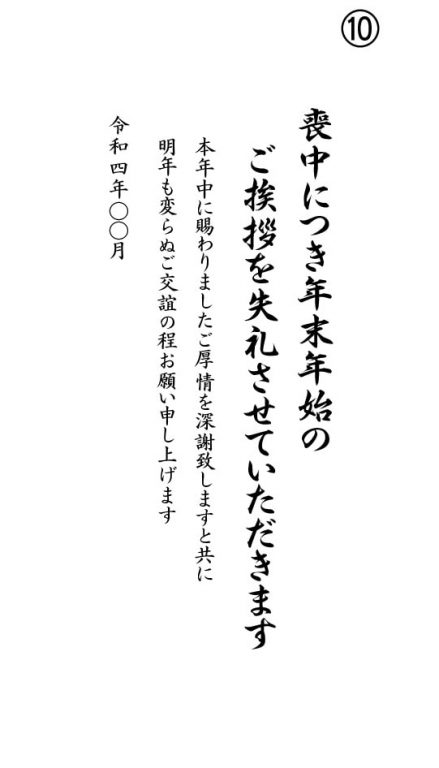 ⑩
喪中につき年末年始の
ご挨拶を失礼させていただきます
本年中に賜わりましたご厚情を深謝致しますと共に
明年も変らぬご交誼の程お願い申し上げます
令和四年〇〇月